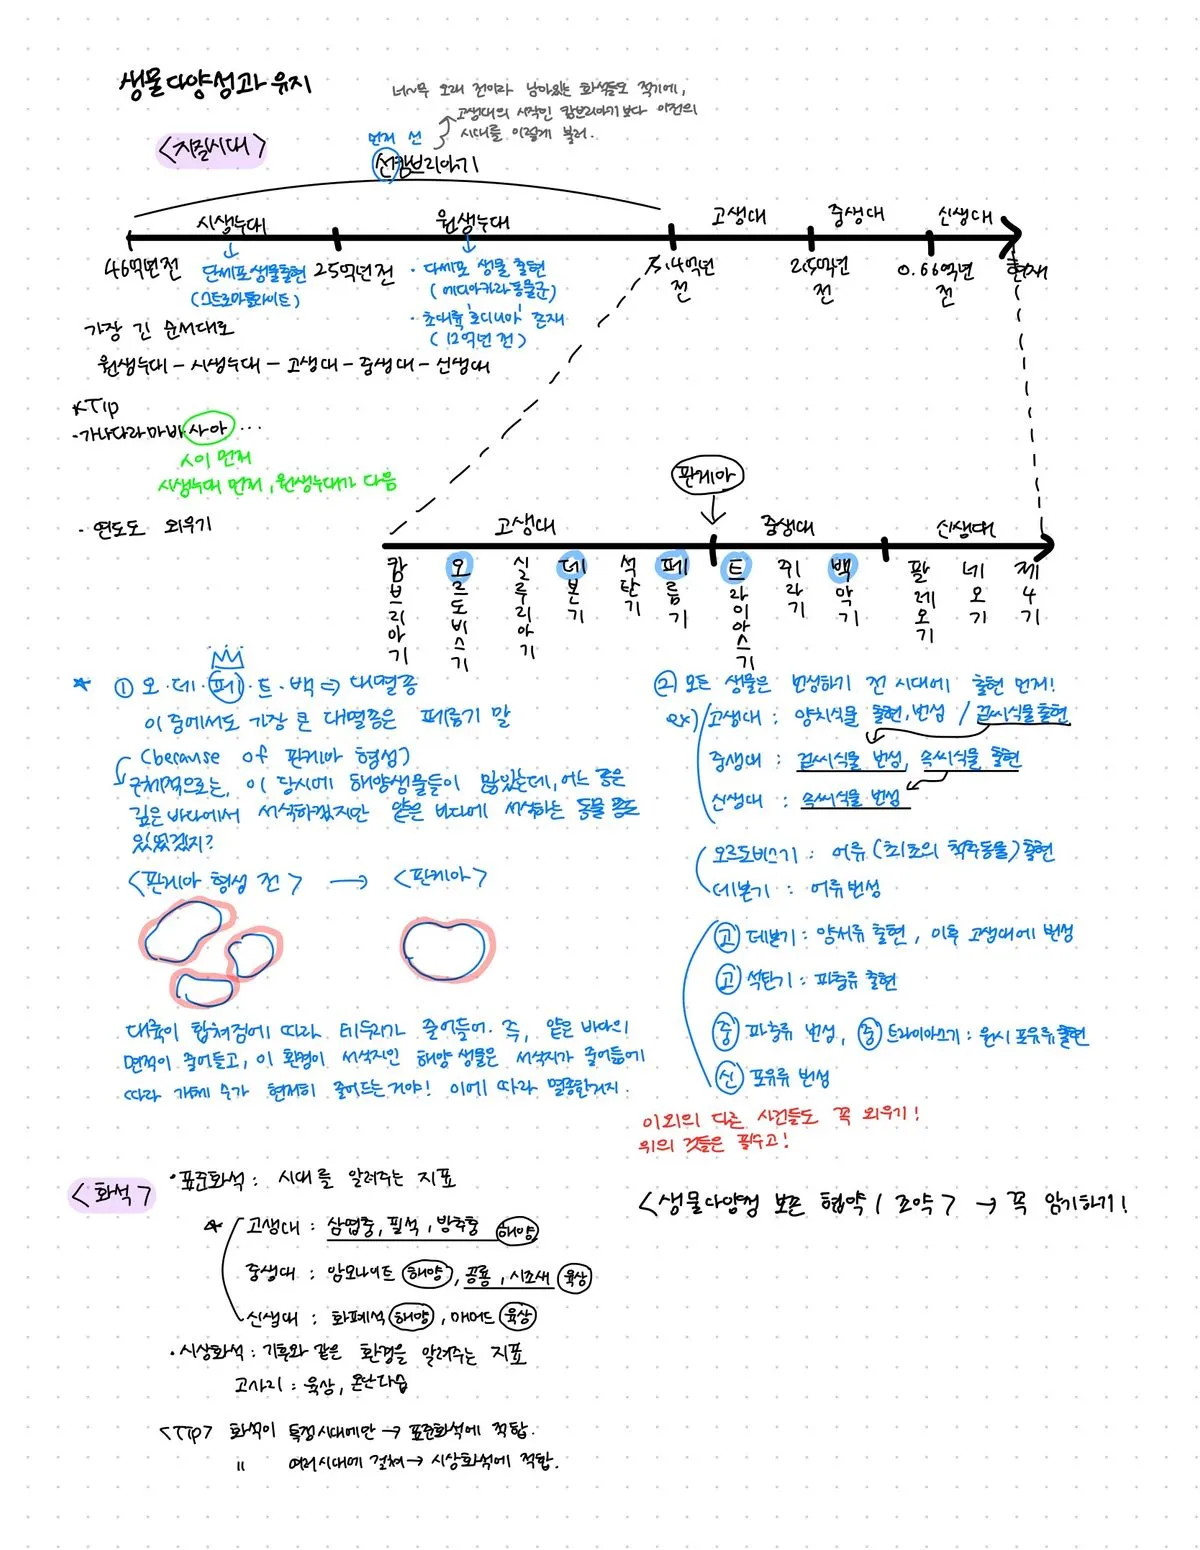 생물다양성과 유지
너~무 오래 전이라 남아있는 화석들도 적기에,
고생대의 시작인 캄브리아기보다 이전의
시대를 이렇게 불러.
<지질시대>
먼저 선
선캄브리아기
시생누대 원생누대 고생대 중생대 신생대
46억년전 25억년전 5.4억년전 2.5억년전 0.66억년전 현재
단세포생물출현
(스트로마톨라이트)
· 다세포 생물 출현
(에디아카라동물군)
· 초대륙 '로디니아' 존재
(12억년 전)
가장 긴 순서대로
원생누대 - 시생누대 - 고생대 - 중생대 - 신생대
*Tip
· 가나다라마바사아 ...
ㅅ이 먼저
시생누대 먼저, 원생누대가 다음
· 연도도 외우기
판게아
고생대 중생대 신생대
캄브리아기 오르도비스기 실루리아기 데본기 석탄기 페름기 트라이아스기 쥐라기 백악기 팔레오기 네오기 제4기
* ① 오·데·페·트·백 => 대멸종
이 중에서도 가장 큰 대멸종은 페름기 말
(because of 판게아 형성)
구체적으로는, 이 당시에 해양생물들이 많았는데, 어느 종은
깊은 바다에서 서식하겠지만 얕은 바다에 서식하는 동물 종도
있었겠지?
<판게아 형성 전> → <판게아>
대륙이 합쳐짐에 따라 테두리가 줄어들어. 즉, 얕은 바다의
면적이 줄어들고, 이 환경이 서식지인 해양 생물은 서식지가 줄어듦에
따라 개체 수가 현저히 줄어드는거야! 이에 따라 멸종한거지.
② 모든 생물은 번성하기 전 시대에 출현 먼저!
ex) 고생대 : 양치식물 출현, 번성 / 겉씨식물 출현
중생대 : 겉씨식물 번성, 속씨식물 출현
신생대 : 속씨식물 번성
오르도비스기 : 어류 (최초의 척추동물) 출현
데본기 : 어류 번성
고 데본기 : 양서류 출현, 이후 고생대에 번성
고 석탄기 : 파충류 출현
중 파충류 번성, 중 트라이아스기 : 원시 포유류 출현
신 포유류 번성
이외의 다른 사건들도 꼭 외우기!
위의 것들은 필수고!
<화석>
· 표준화석 : 시대를 알려주는 지표
* 고생대 : 삼엽충, 필석, 방추충 해양
중생대 : 암모나이트 해양, 공룡, 시조새 육상
신생대 : 화폐석 해양, 매머드 육상
· 시상화석 : 기후와 같은 환경을 알려주는 지표
고사리 : 육상, 온난다습
<Tip> 화석이 특정시대에만 → 표준화석에 적합.
" 여러시대에 걸쳐 → 시상화석에 적합.
<생물다양성 보존 협약 / 조약> → 꼭 암기하기!